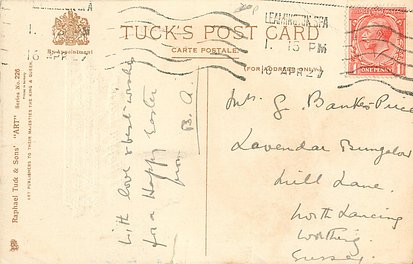 TUCK'S POST CARD
CARTE POSTALE
(FOR ADDRESS ONLY)
By Appointment
LEAMINGTON SPA
1. 15 PM
16 APR 27
1. 15 PM
APR 27
ONE PENNY
Raphael Tuck & Sons' "ART" Series No. 226
ART PUBLISHERS TO THEIR MAJESTIES THE KING & QUEEN.
With love & best wishes
for a Happy Easter
from
B. A.
Mrs G. Banks Price
Lavendar Bungalow
Mill Lane.
North Lancing
Worthing.
Sussex.